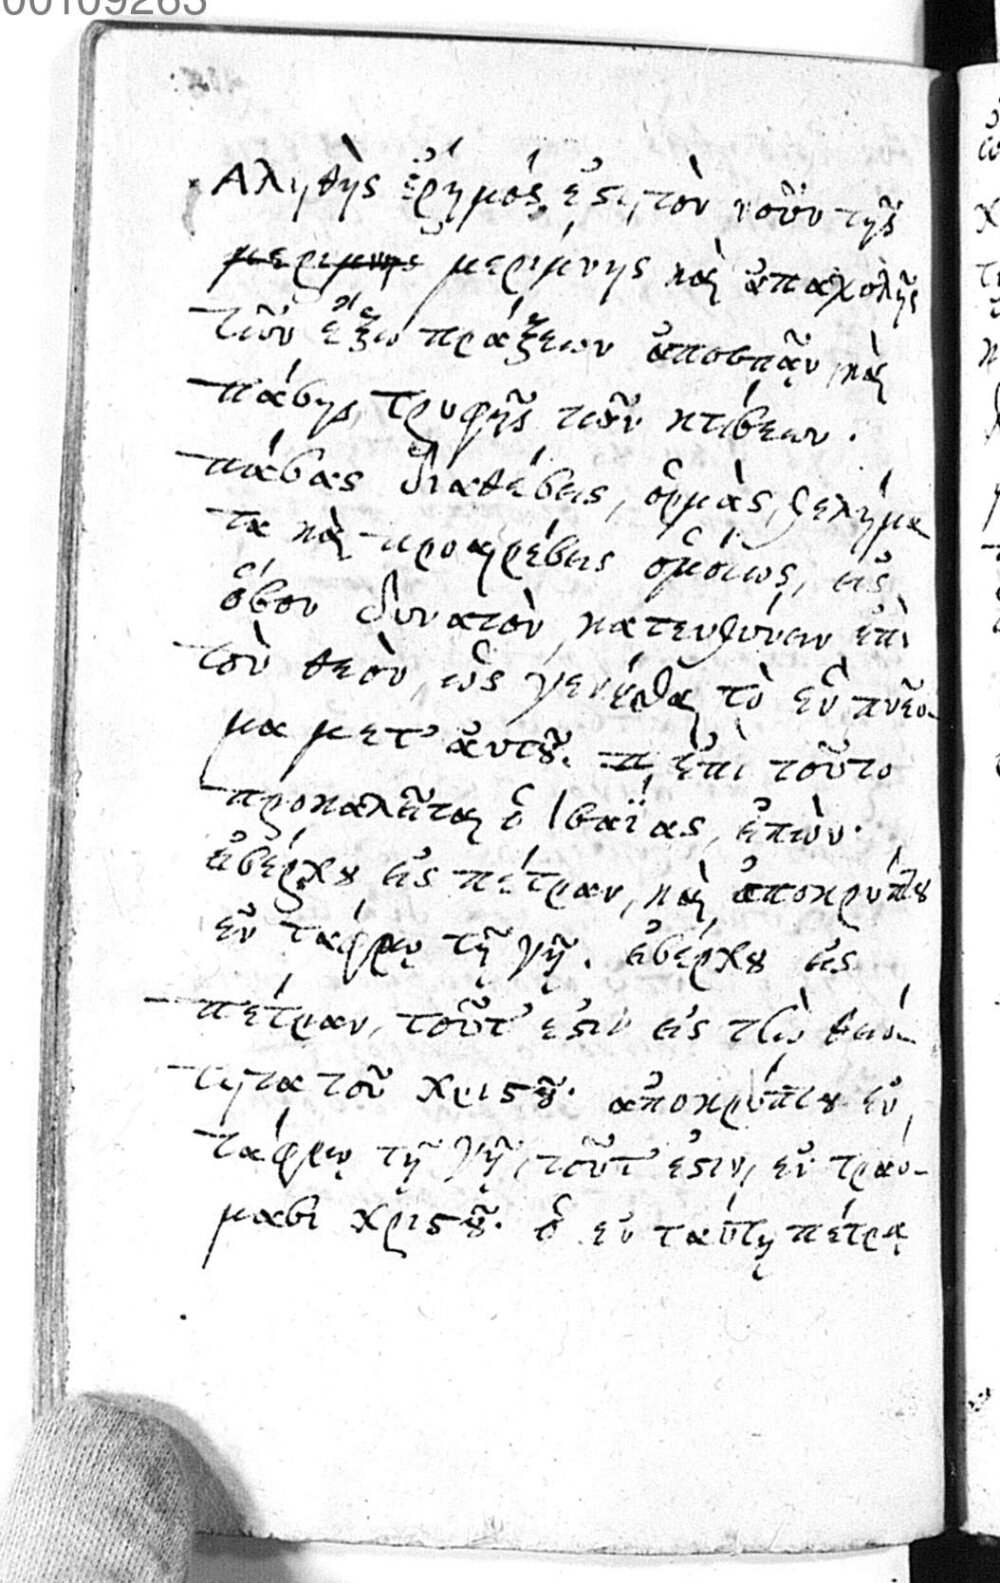 00109263
Ἀληθὴς ἔρημός ἐστι, τὸν νοῦν τῆς
μεριμνης μερίμνης καὶ ἀπασχολῆς
τῶν ἔξω πράξεων ἀποσπᾷν, καὶ
πάσης τρυφῆς τῶν κτίσεων.
πάσας διαθέσεις, ὁρμὰς, θελήμα
τα καὶ προαιρέσεις ὁμοίως, εἰς
ὅσον δυνατὸν, κατευθύνειν ἐπὶ
τὸν θεὸν, ὡς γενέσθαι τὸ ἓν πνεῦ-
μα μετ' αὐτοῦ. π ἐπὶ τοῦτο
προκαλεῖται ὁ Ἰσαΐας, εἰπών·
εἰσέρχου εἰς πέτραν, καὶ ἀποκρύπτου
ἐν τάφρῳ τῇ γῇ. εἰσέρχου εἰς
πέτραν, τοῦτ' ἔστιν εἰς τὴν θεό-
τητα τοῦ Χριστοῦ. ἀποκρύπτου ἐν
τάφρῳ τῇ γῇ, τοῦτ' ἔστιν, ἐν τραύ-
μασι Χριστοῦ. ὁ ἐν ταύτῃ πέτρᾳ